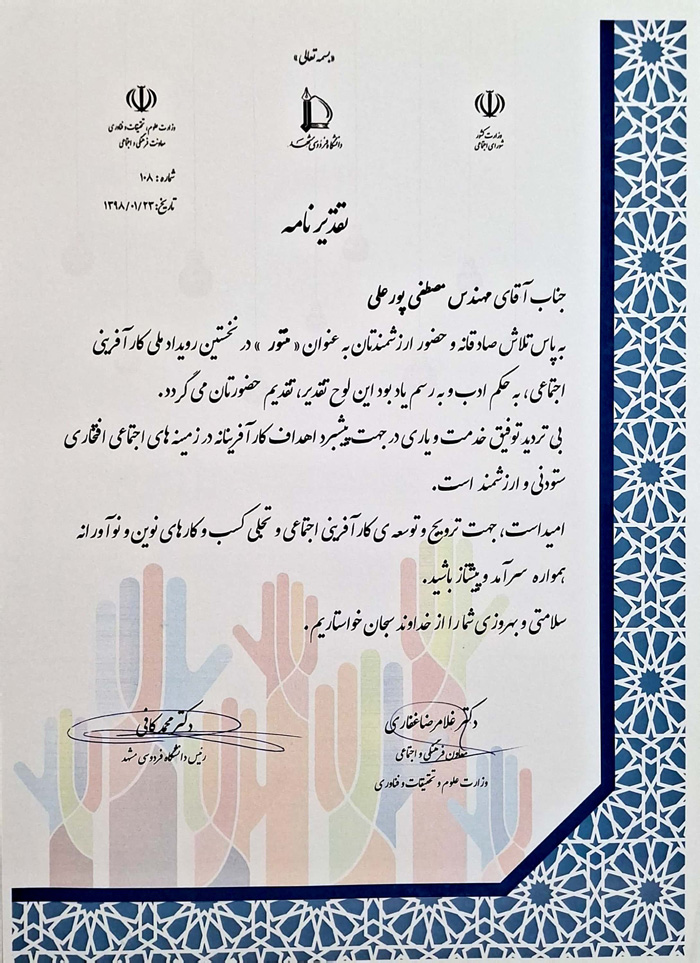 «بسمه تعالی»
وزارت کشور
شورای اجتماعی
دانشگاه فردوسی مشهد
وزارت علوم، تحقیقات و فناوری
معاونت فرهنگی و اجتماعی
شماره: ۱۰۸
تاریخ: ۱۳۹۸/۰۱/۲۳
تقدیر نامه
جناب آقای مهندس مصطفی پورعلی
به پاس تلاش صادقانه و حضور ارزشمندتان به عنوان « منتور » در نخستین رویداد ملی کارآفرینی
اجتماعی، به حکم ادب و به رسم یادبود این لوح تقدیر، تقدیم حضورتان می گردد.
بی تردید توفیق خدمت و یاری در جهت پیشبرد اهداف کارآفرینانه در زمینه های اجتماعی افتخاری
ستودنی و ارزشمند است.
امید است، جهت ترویج و توسعه ی کارآفرینی اجتماعی و تجلی کسب و کارهای نوین و نوآورانه
همواره سرآمد و پیشتاز باشید.
سلامتی و بهروزی شما را از خداوند سبحان خواستاریم.
دکتر غلامرضا غفاری
معاون فرهنگی و اجتماعی
وزارت علوم و تحقیقات و فناوری
دکتر محمد کافی
رئیس دانشگاه فردوسی مشهد